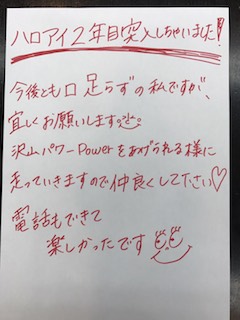 ハロアイ2年目突入しちゃいました!
今後とも口足らずの私ですが、
宜しくお願いします
沢山パワーPowerをあげられる様に
走っていきますので仲良くして下さい♡
電話もできて
楽しかったです